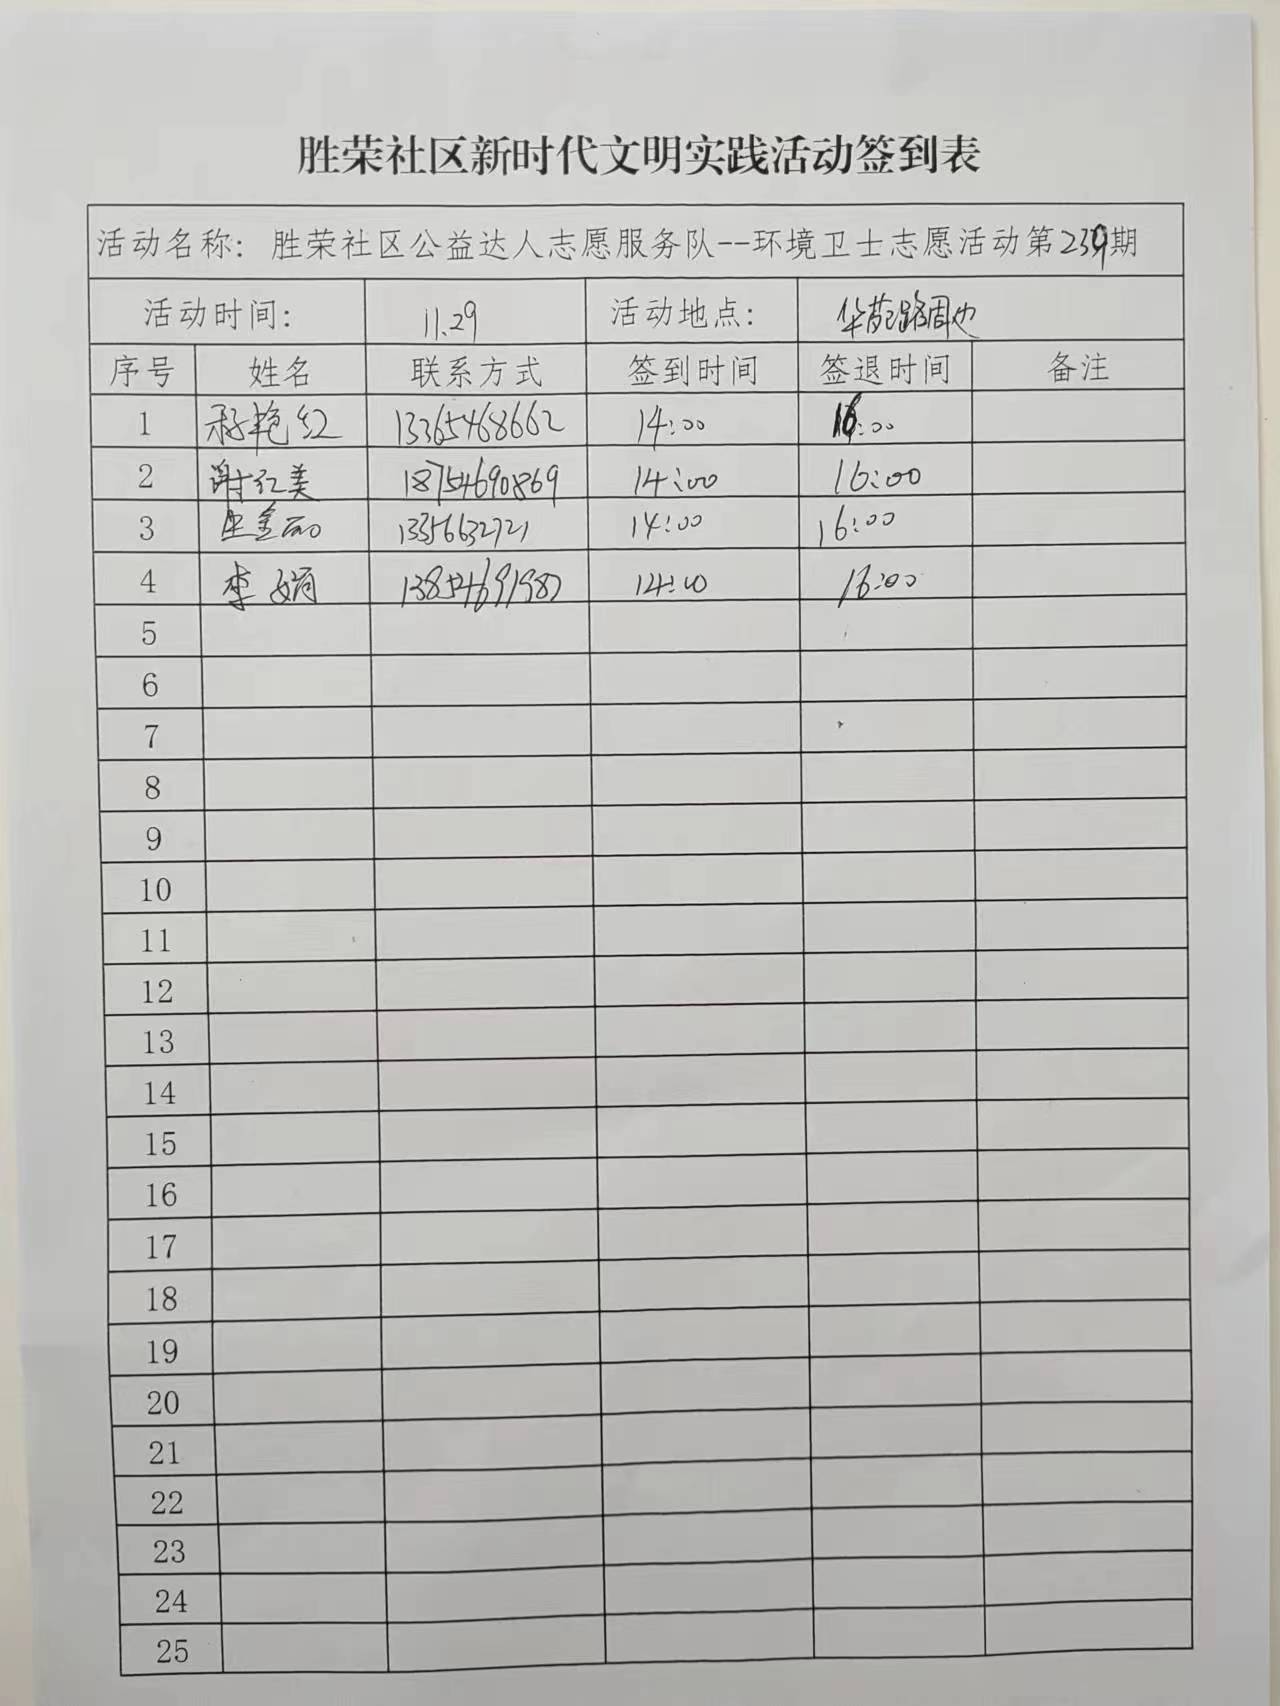 胜荣社区新时代文明实践活动签到表
活动名称: 胜荣社区公益达人志愿服务队--环境卫士志愿活动第239期
活动时间: 11.29 活动地点: 华苑路周边
序号 姓名 联系方式 签到时间 签退时间 备注
1 艳红 13365468662 14:00 16:00
2 谢红美 18754690869 14:00 16:00
3 13356632721 14:00 16:00
4 李娟 13854691987 14:00 16:00
5
6
7
8
9
10
11
12
13
14
15
16
17
18
19
20
21
22
23
24
25